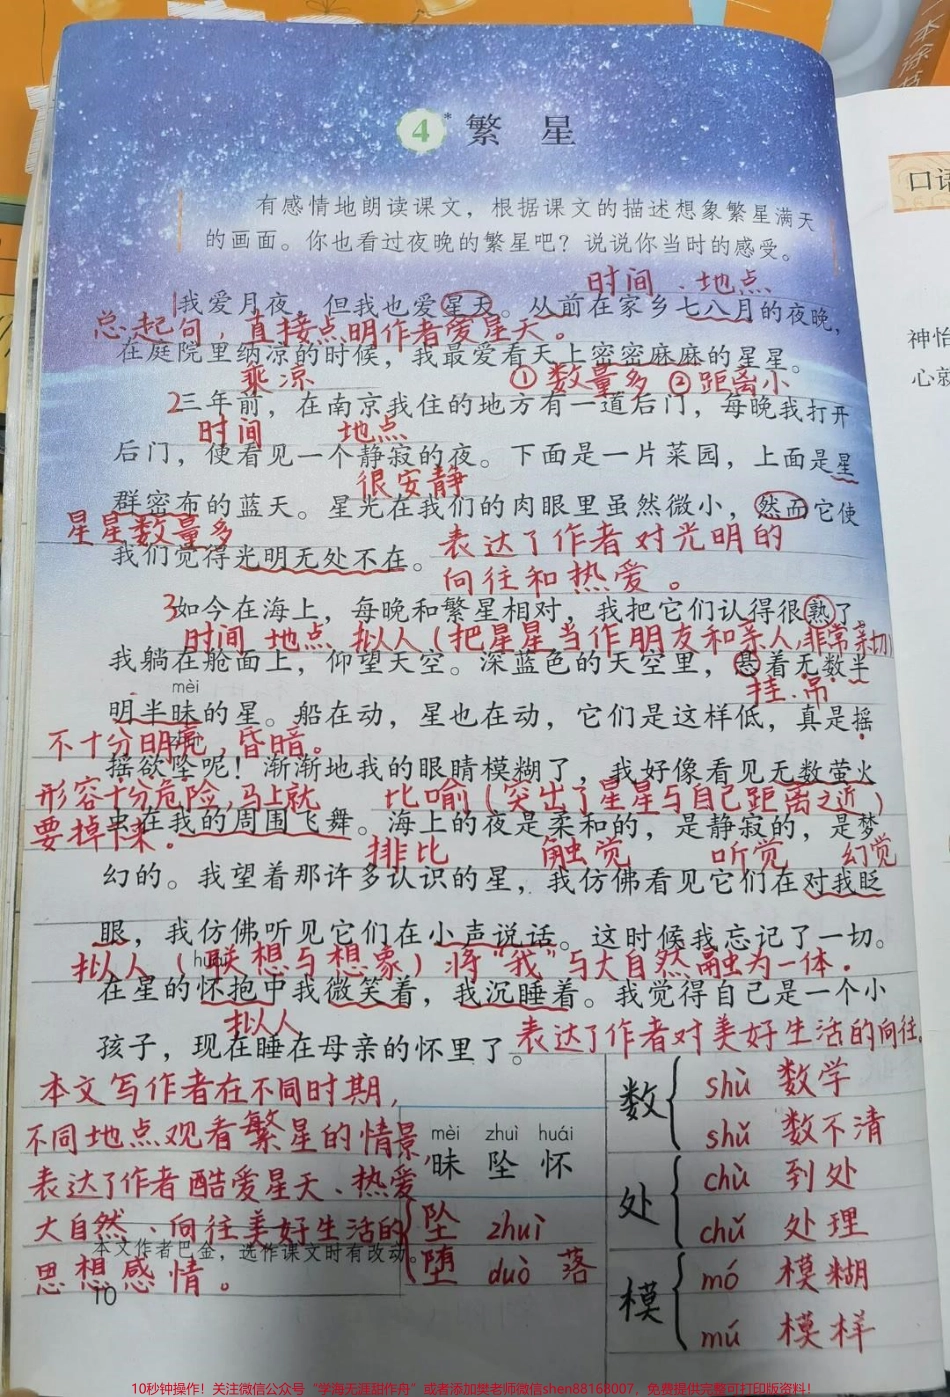 4* 繁 星
有感情地朗读课文，根据课文的描述想象繁星满天
的画面。你也看过夜晚的繁星吧？说说你当时的感受。
时间 、地点
1我爱月夜，但我也爱星天。从前在家乡七八月的夜晚，
总起句，直接点明作者爱星天。
在庭院里纳凉的时候，我最爱看天上密密麻麻的星星。
乘凉 ①数量多 ②距离小
2三年前，在南京我住的地方有一道后门，每晚我打开
时间 地点
后门，便看见一个静寂的夜。下面是一片菜园，上面是星
很安静
群密布的蓝天。星光在我们的肉眼里虽然微小，然而它使
星星数量多
我们觉得光明无处不在。
表达了作者对光明的
向往和热爱。
3如今在海上，每晚和繁星相对，我把它们认得很熟了。
时间 地点 拟人（把星星当作朋友和亲人,非常亲切）
我躺在舱面上，仰望天空。深蓝色的天空里，悬着无数半
挂、吊
mèi
明半昧的星。船在动，星也在动，它们是这样低，真是摇
不十分明亮，昏暗。
摇欲坠呢！渐渐地我的眼睛模糊了，我好像看见无数萤火
形容十分危险,马上就 比喻（突出了星星与自己距离之近）
要掉下来。
虫在我的周围飞舞。海上的夜是柔和的，是静寂的，是梦
排比 触觉 听觉 幻觉
幻的。我望着那许多认识的星，我仿佛看见它们在对我眨
眼，我仿佛听见它们在小声说话。这时候我忘记了一切。
拟人（联想与想象）将“我”与大自然融为一体。
huái
在星的怀抱中我微笑着，我沉睡着。我觉得自己是一个小
拟人
孩子，现在睡在母亲的怀里了。
表达了作者对美好生活的向往。
本文写作者在不同时期，
不同地点观看繁星的情景，
表达了作者酷爱星天、热爱
大自然、向往美好生活的
思想感情。
本文作者巴金，选作课文时有改动。
10
mèi zhuì huái
昧 坠 怀
坠 zhuì
堕 duò 落
数 shù 数学
shǔ 数不清
处 chù 到处
chǔ 处理
模 mó 模糊
mú 模样
口语
神怡
心就
10秒钟操作！关注微信公众号“学海无涯甜作舟”或者添加樊老师微信shen88168007，免费提供完整可打印版资料！